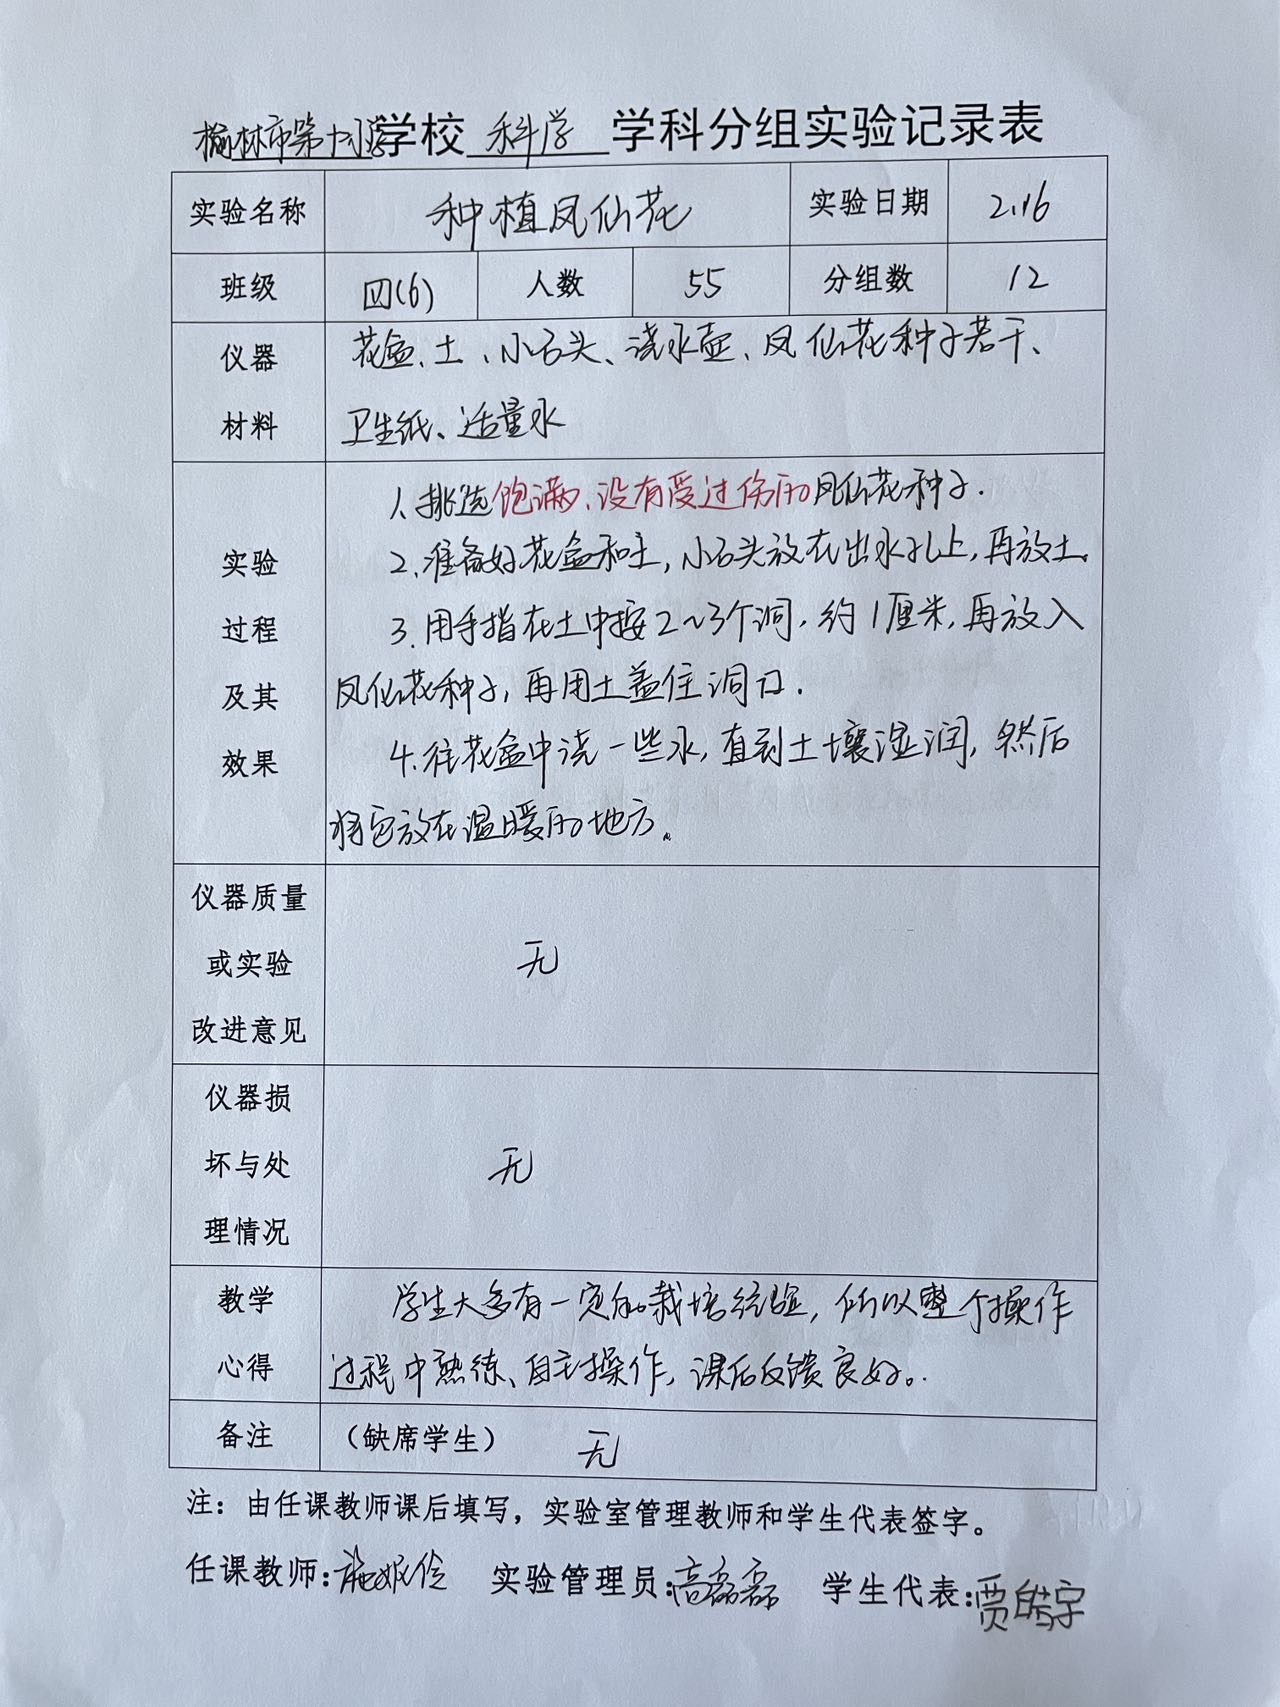 榆林市第十小学学校 科学 学科分组实验记录表
实验名称 种植凤仙花 实验日期 2.16
班级 四(6) 人数 55 分组数 12
仪器材料 花盆、土、小石头、浇水壶、凤仙花种子若干、
卫生纸、适量水
实验过程及其效果
1.挑选饱满、没有受过伤的凤仙花种子.
2.准备好花盆和土,小石头放在出水孔上,再放土.
3.用手指在土中按2~3个洞,约1厘米,再放入
凤仙花种子,再用土盖住洞口.
4.往花盆中浇一些水,直到土壤湿润,然后
将它放在温暖的地方。
仪器质量或实验改进意见 无
仪器损坏与处理情况 无
教学心得 学生大多有一定的栽培经验,所以整个操作
过程中熟练、自主操作,课后反馈良好。
备注 (缺席学生) 无
注:由任课教师课后填写,实验室管理教师和学生代表签字。
任课教师: 实验管理员:高磊磊 学生代表:贾皓宇